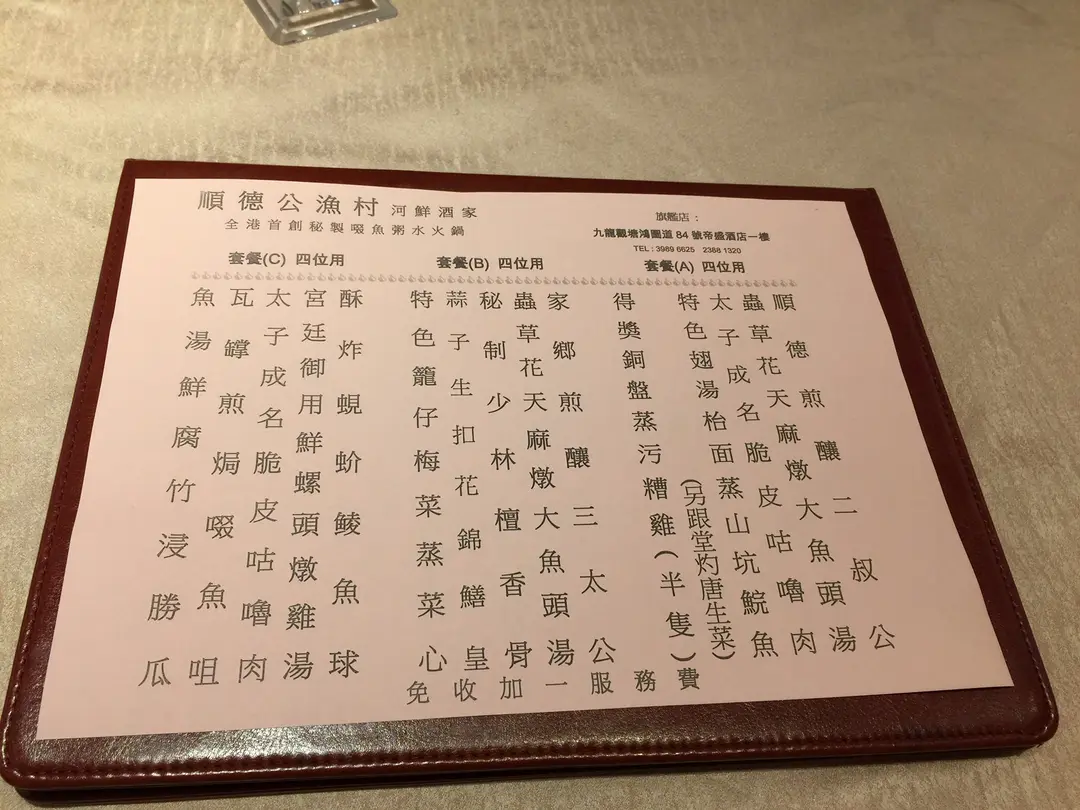 順德公漁村 河鮮酒家
全港首創秘製啜魚粥水火鍋
旗艦店：
九龍觀塘鴻圖道 84 號帝盛酒店一樓
TEL : 3989 6625 2388 1320
套餐(A) 四位用
順德煎釀二叔公
蟲草花天麻燉大魚頭湯
太子成名脆皮咕嚕肉
特色翅湯枱面蒸山坑鯇魚
(另跟堂灼唐生菜)
得獎銅盤蒸污糟雞(半隻)
套餐(B) 四位用
家鄉煎釀三太公
蟲草花天麻燉大魚頭湯
秘制少林檀香骨
蒜子生扣花錦鱔皇
特色籠仔梅菜蒸菜心
套餐(C) 四位用
酥炸蜆蚧鲮魚球
宮廷御用鮮螺頭燉雞湯
太子成名脆皮咕嚕肉
瓦罉煎焗啜魚咀
魚湯鮮腐竹浸勝瓜
免收加一服務費